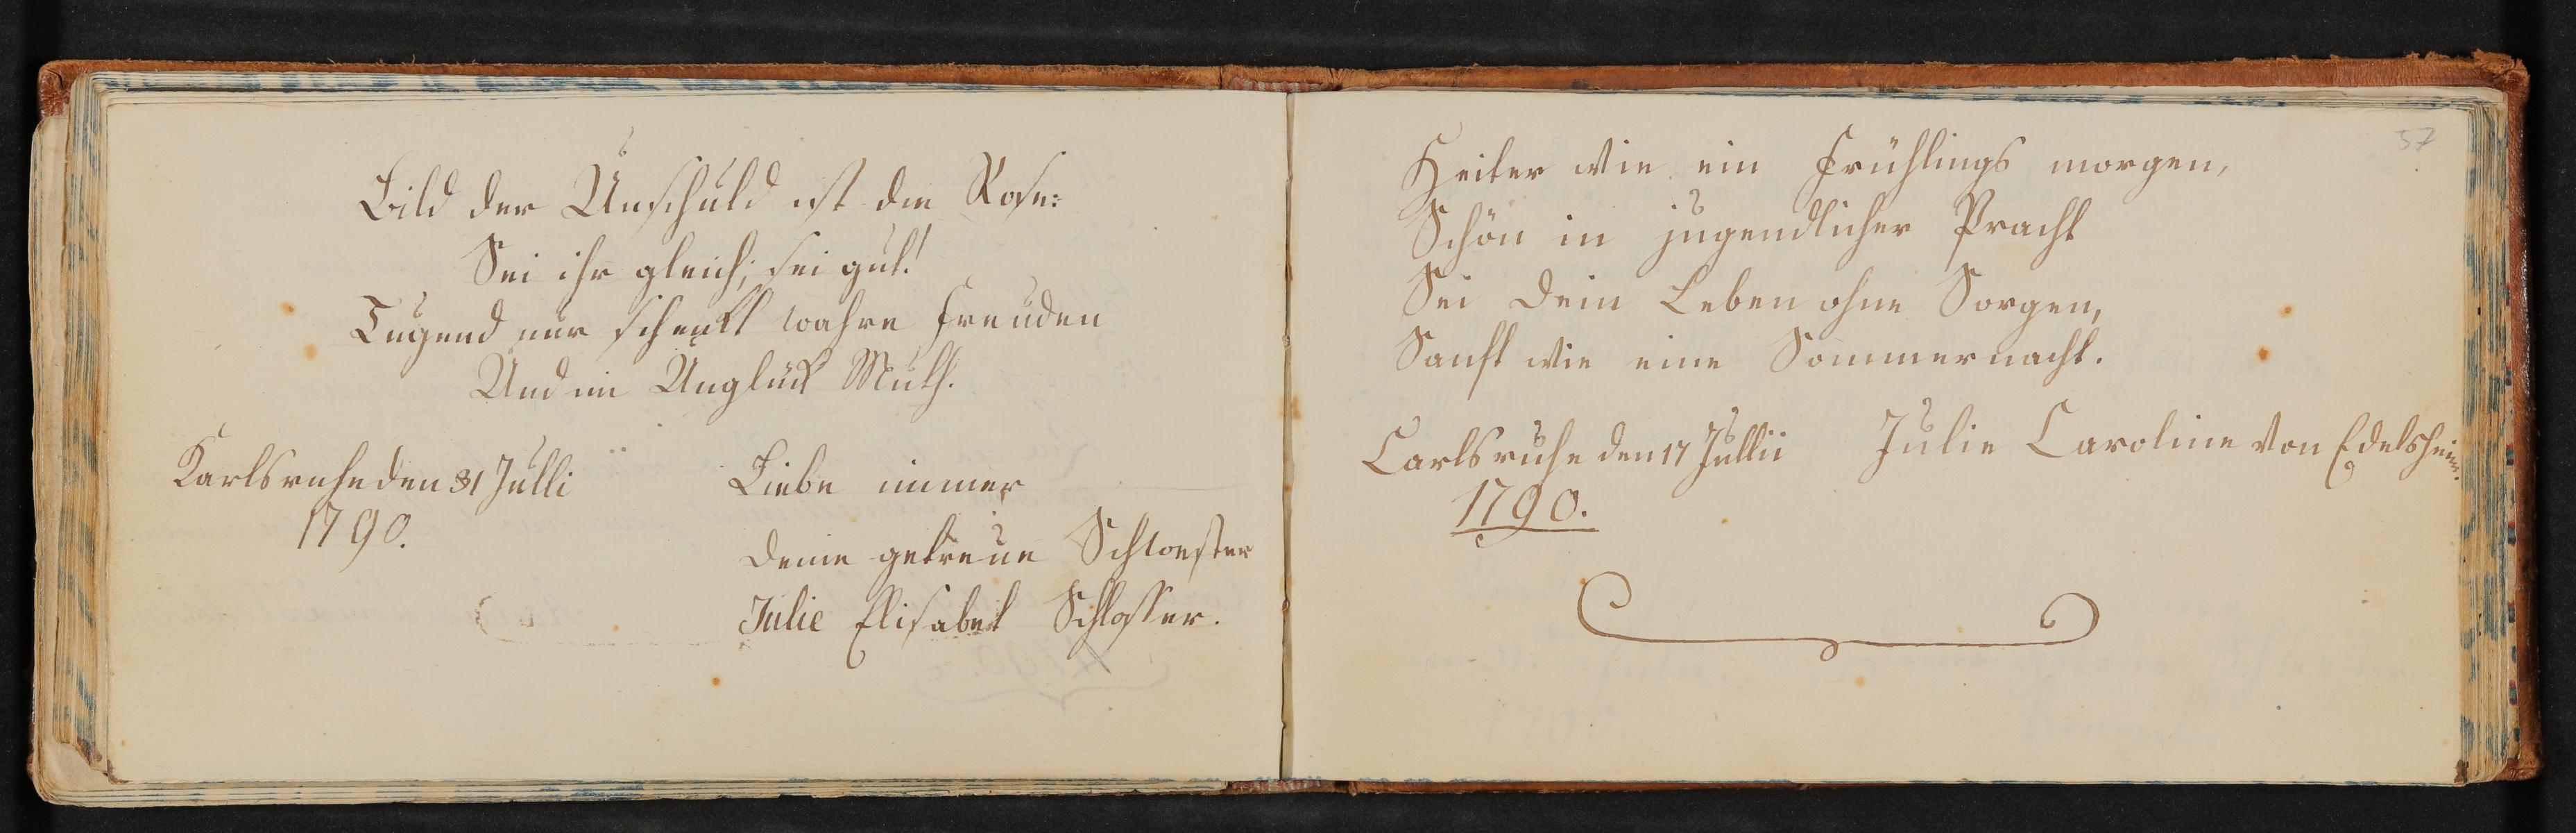 Bild der Unschuld ist die Rose:
Sei ihr gleich; sei gut!
Tugend nur schenkt wahre Freuden
Und im Unglück Muth.
Karlsruhe den 31 Julli
1790.
Liebe immer
deine getreue Schwester
Julie Elisabet Schlosser.
57
Heiter wie ein Frühlings morgen,
Schön in jugendlicher Pracht
Sei dein Leben ohne Sorgen,
Sanft wie eine Sommernacht.
Carlsruhe den 17 Jullii
1790.
Julie Caroline von Edelsheim.